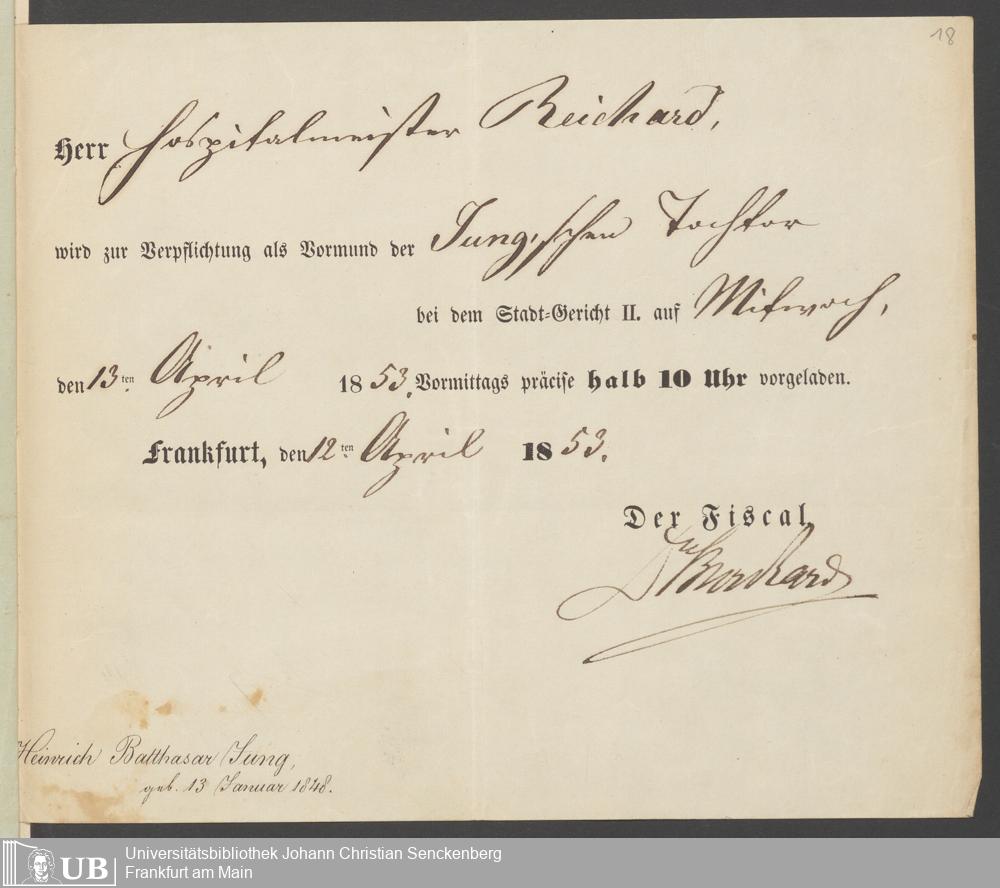 18
Herr Hospitalmeister Reichard,
wird zur Verpflichtung als Vormund der Jung'schen Tochter
bei dem Stadt=Gericht II. auf Mitwoch,
den 13ten April 1853. Vormittags präcise halb 10 Uhr vorgeladen.
Frankfurt, den 12ten April 1853.
Der Fiscal
Dr Burckard
Heinrich Balthasar Jung,
geb. 13 Januar 1848.
UB
Universitätsbibliothek Johann Christian Senckenberg
Frankfurt am Main